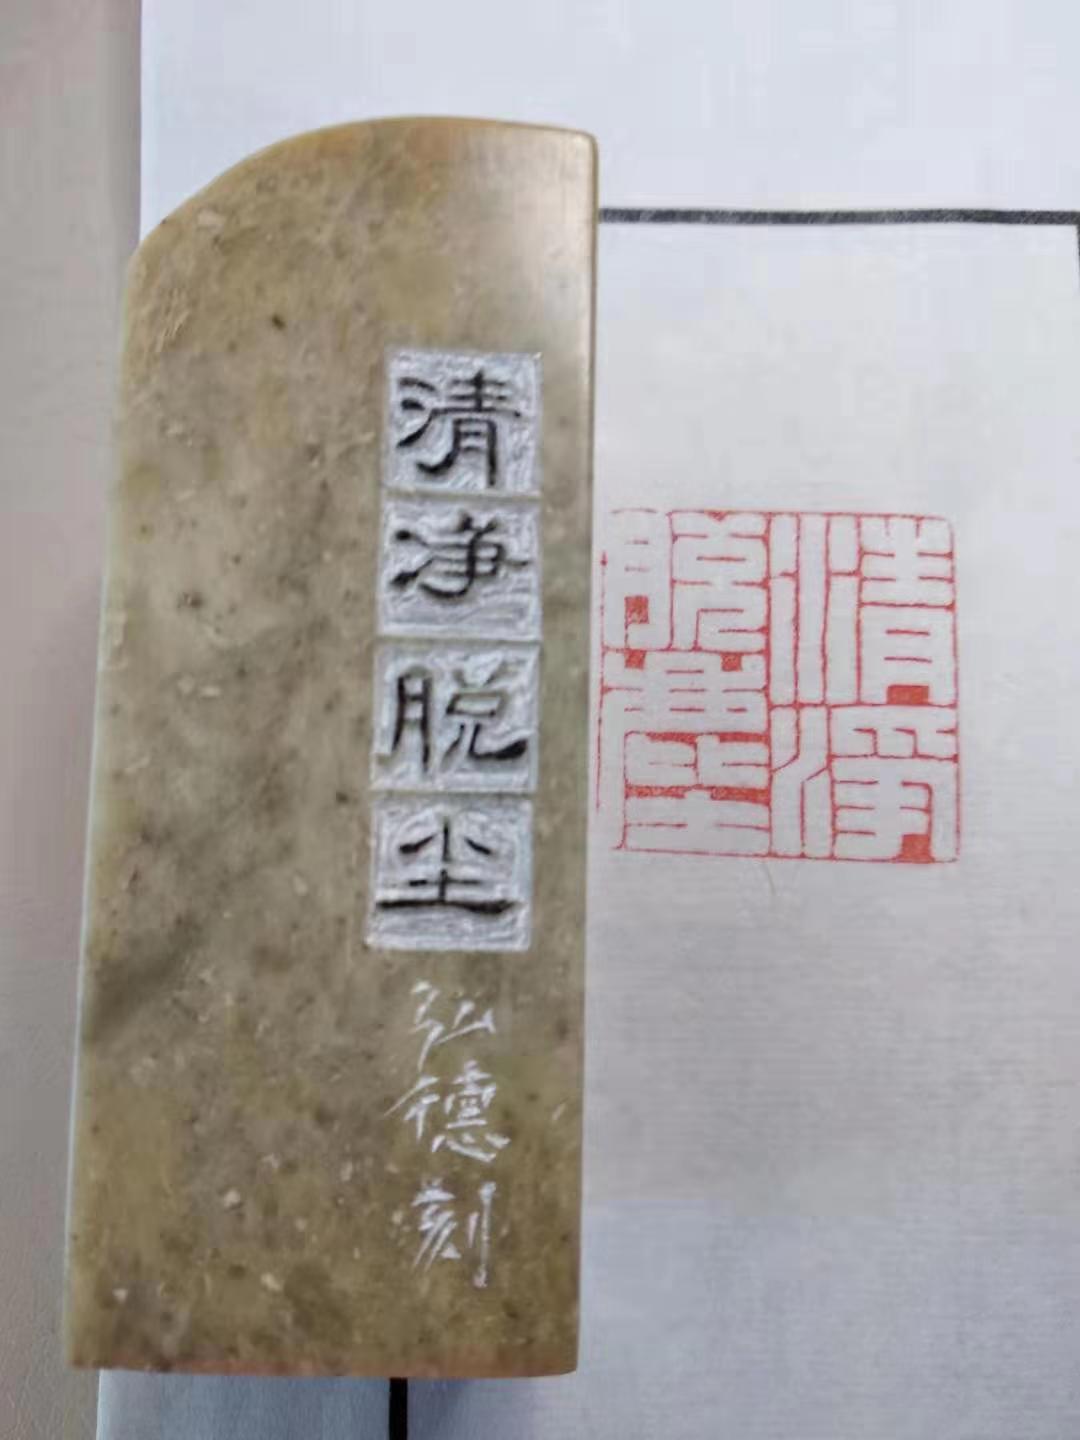 清净脱尘
弘德刻
清淨
脱塵